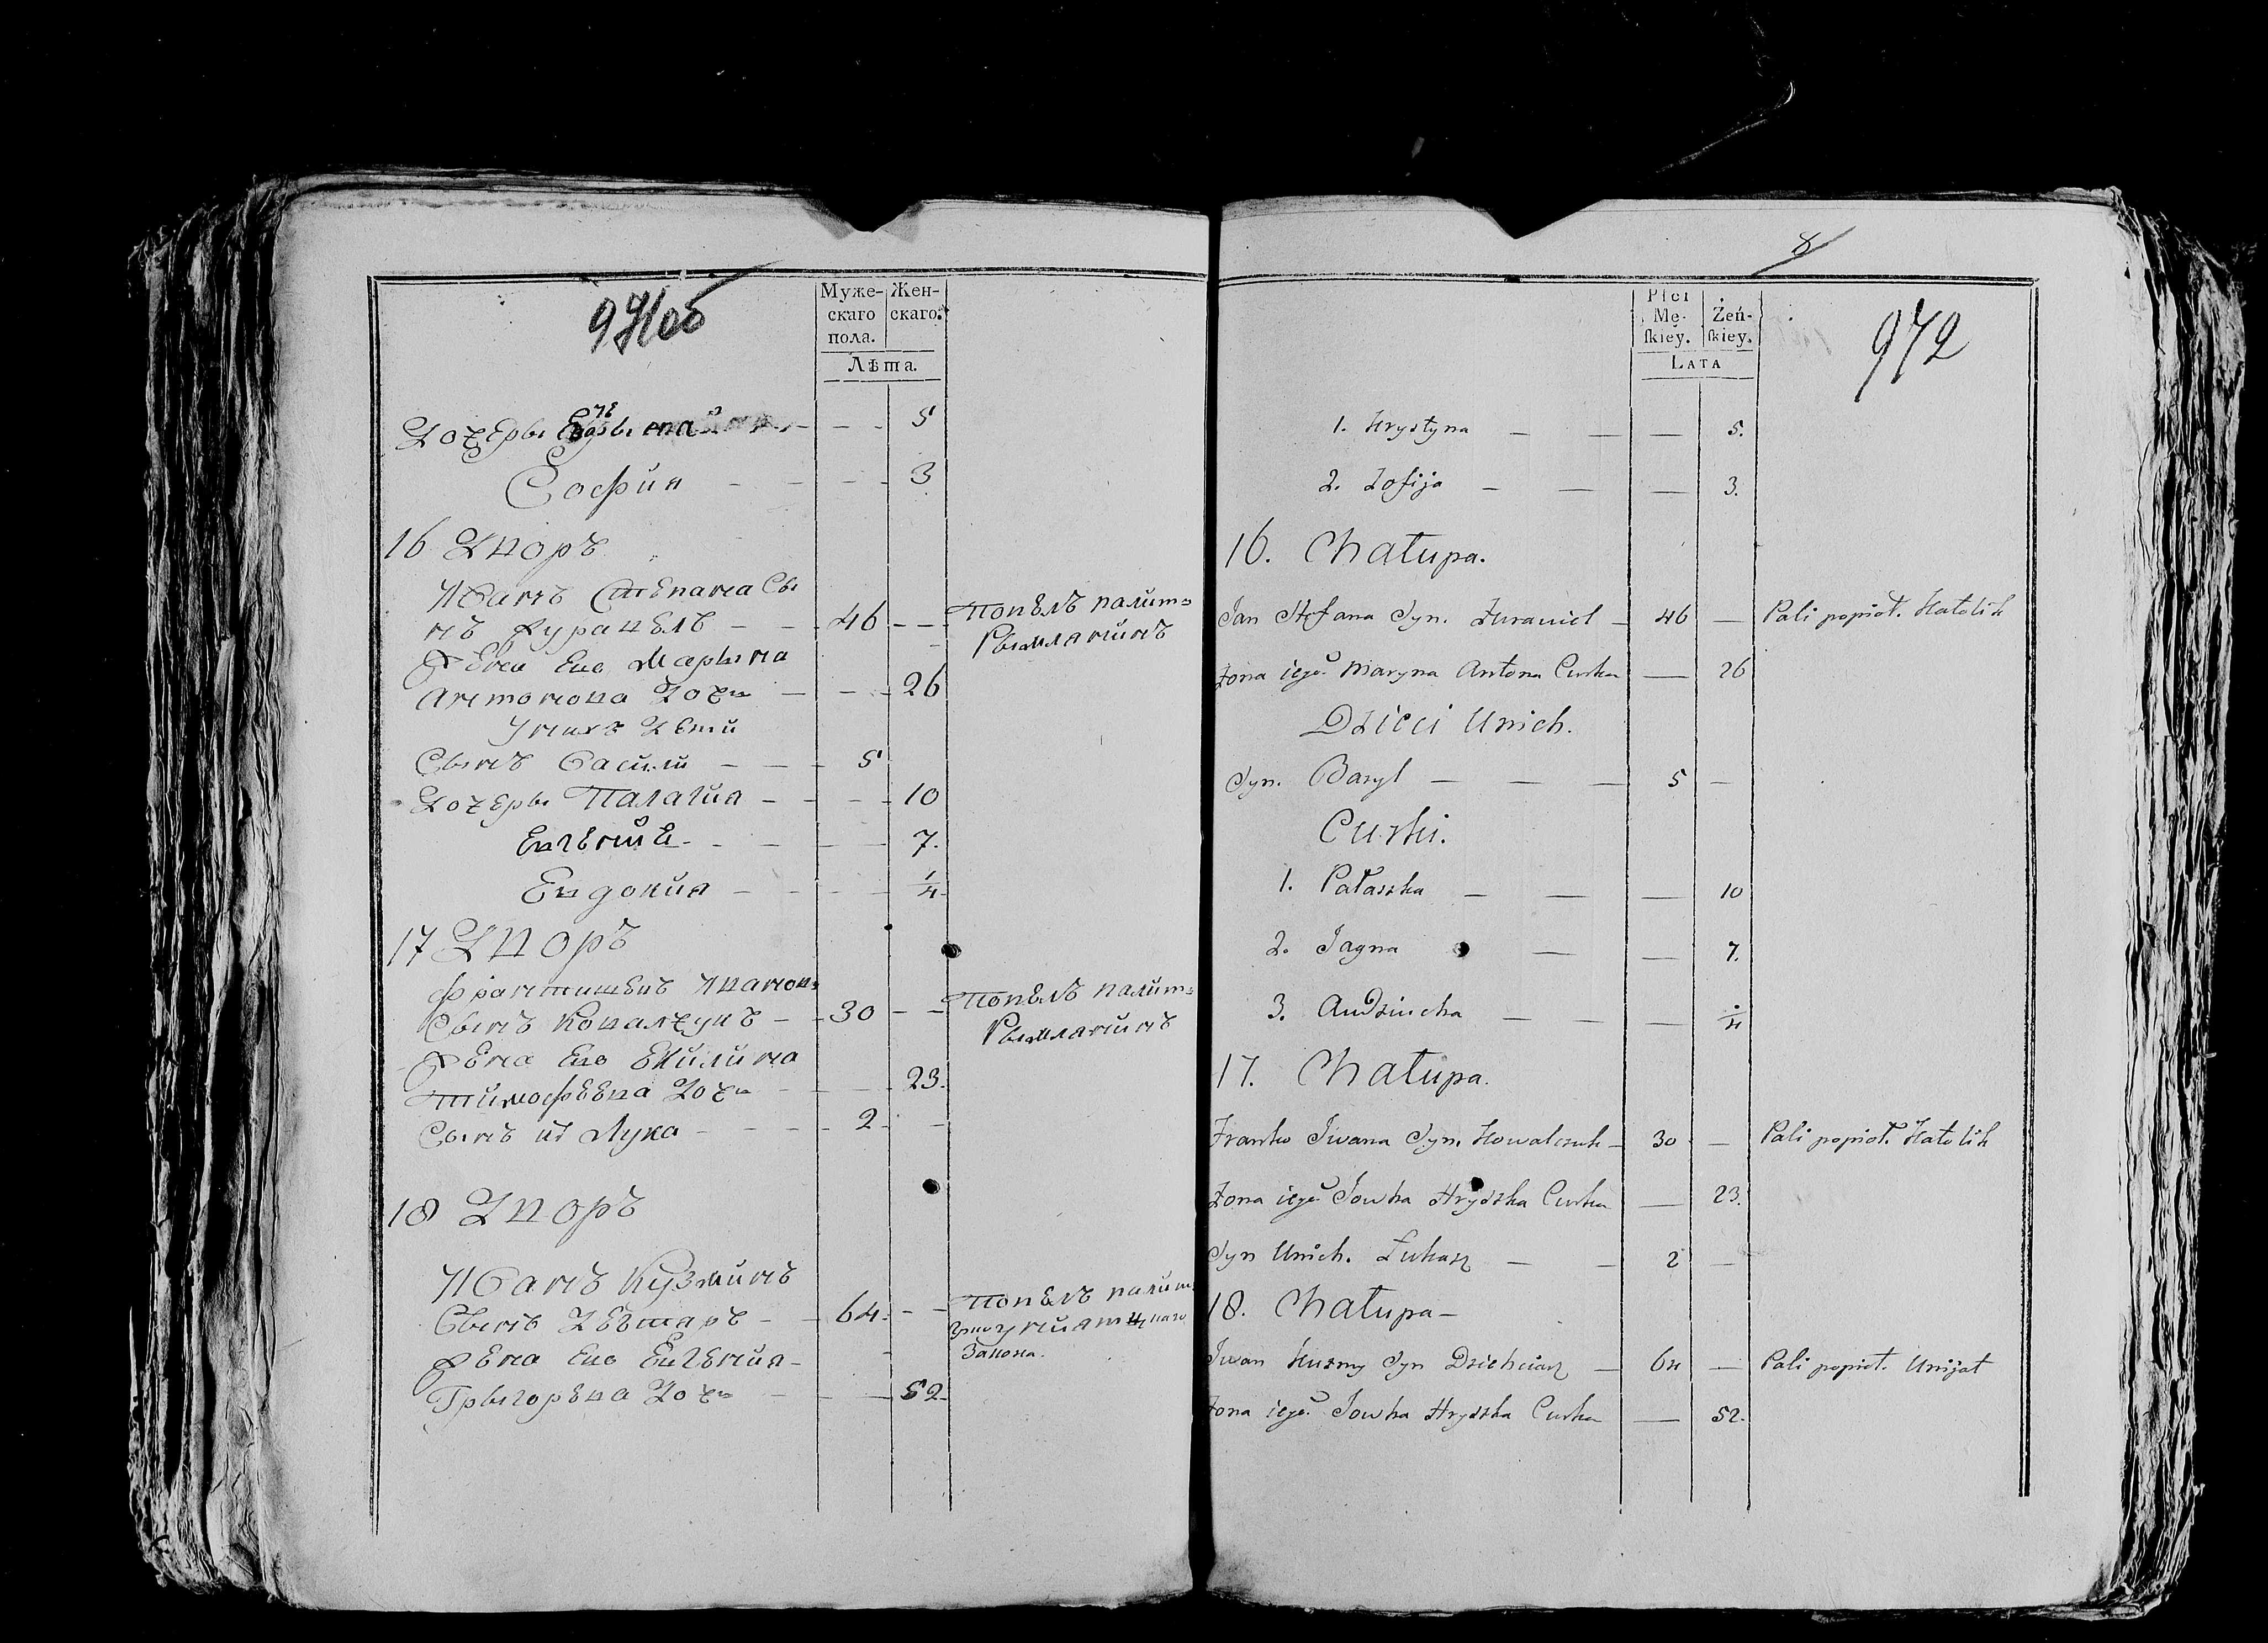 971об
Муже-
скаго
пола.
Жен-
скаго.
Лѣта.
Дочеры - - - 5
София - - - 3
16 Дворъ
Иванъ Степана Сы
нъ Журавель - - 46 - - Попелъ палит=
Рымлянинъ
Жена Ево Марына
Антонова Дочь - - - 26
У нихъ Дети
Сынъ Василий - - - 5
Дочеры Палагия - - - 10
Евгения - - - 7.
Евдокия - - - 1/4
17 Дворъ
Францишекъ Иванов=
Сынъ Ковалчукъ - 30 - - Попелъ палит=
Рымлянинъ
Жена Ево
Тимофеева Дочь - - - 23.
Сынъ их Лука - - - 2 -
18 Дворъ
Иванъ Кузминъ
Сынъ Дехтяръ - - 64. - - Попелъ палит
закона.
Жена Ево Евгения -
Грыгорева Дочь - - - 52
8
972
Płci
Mę-
ſkiey.
Żeń-
ſkiey.
LATA
1. Krystyna — — — 5.
2. Zofija — — — 3.
16. Chałupa.
Jan Stefana Syn. Żurawiel — 46 — Pali popioł. Katolik
Żona iego Maryna Antona Curka — 26
Dzieci Unich.
Syn. Bazyl — — — 5 —
Curki.
1. Pałaszka — — — 10
2. Jagna — — 7.
3. Audziucha — — — 1/4
17. Chałupa.
Franko Iwana Syn. Kowalczuk — 30 — Pali popioł. Katolik
Żona iego Jowka Hryszka Curka — 23.
Syn Unich. Łukasz — — 2 —
18. Chałupa —
Iwan Kuzmy Syn Dziehciarz — 64 — Pali popioł. Unijat
Żona iego Jowka Hryszka Curka — 52.